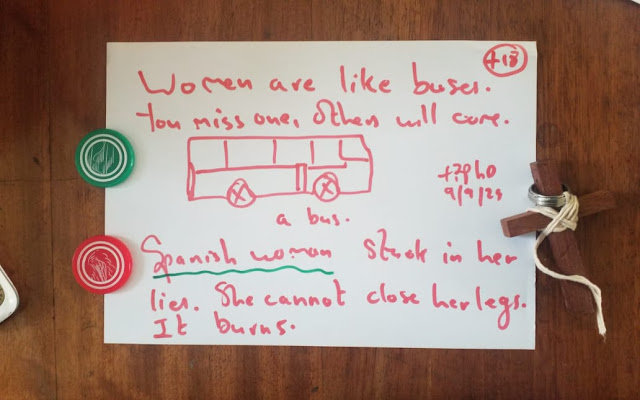 +18
Women are like buses.
You miss one, others will come.
9/9/25
a bus.
Spanish woman stuck in her
lies. She cannot close her legs.
It burns.